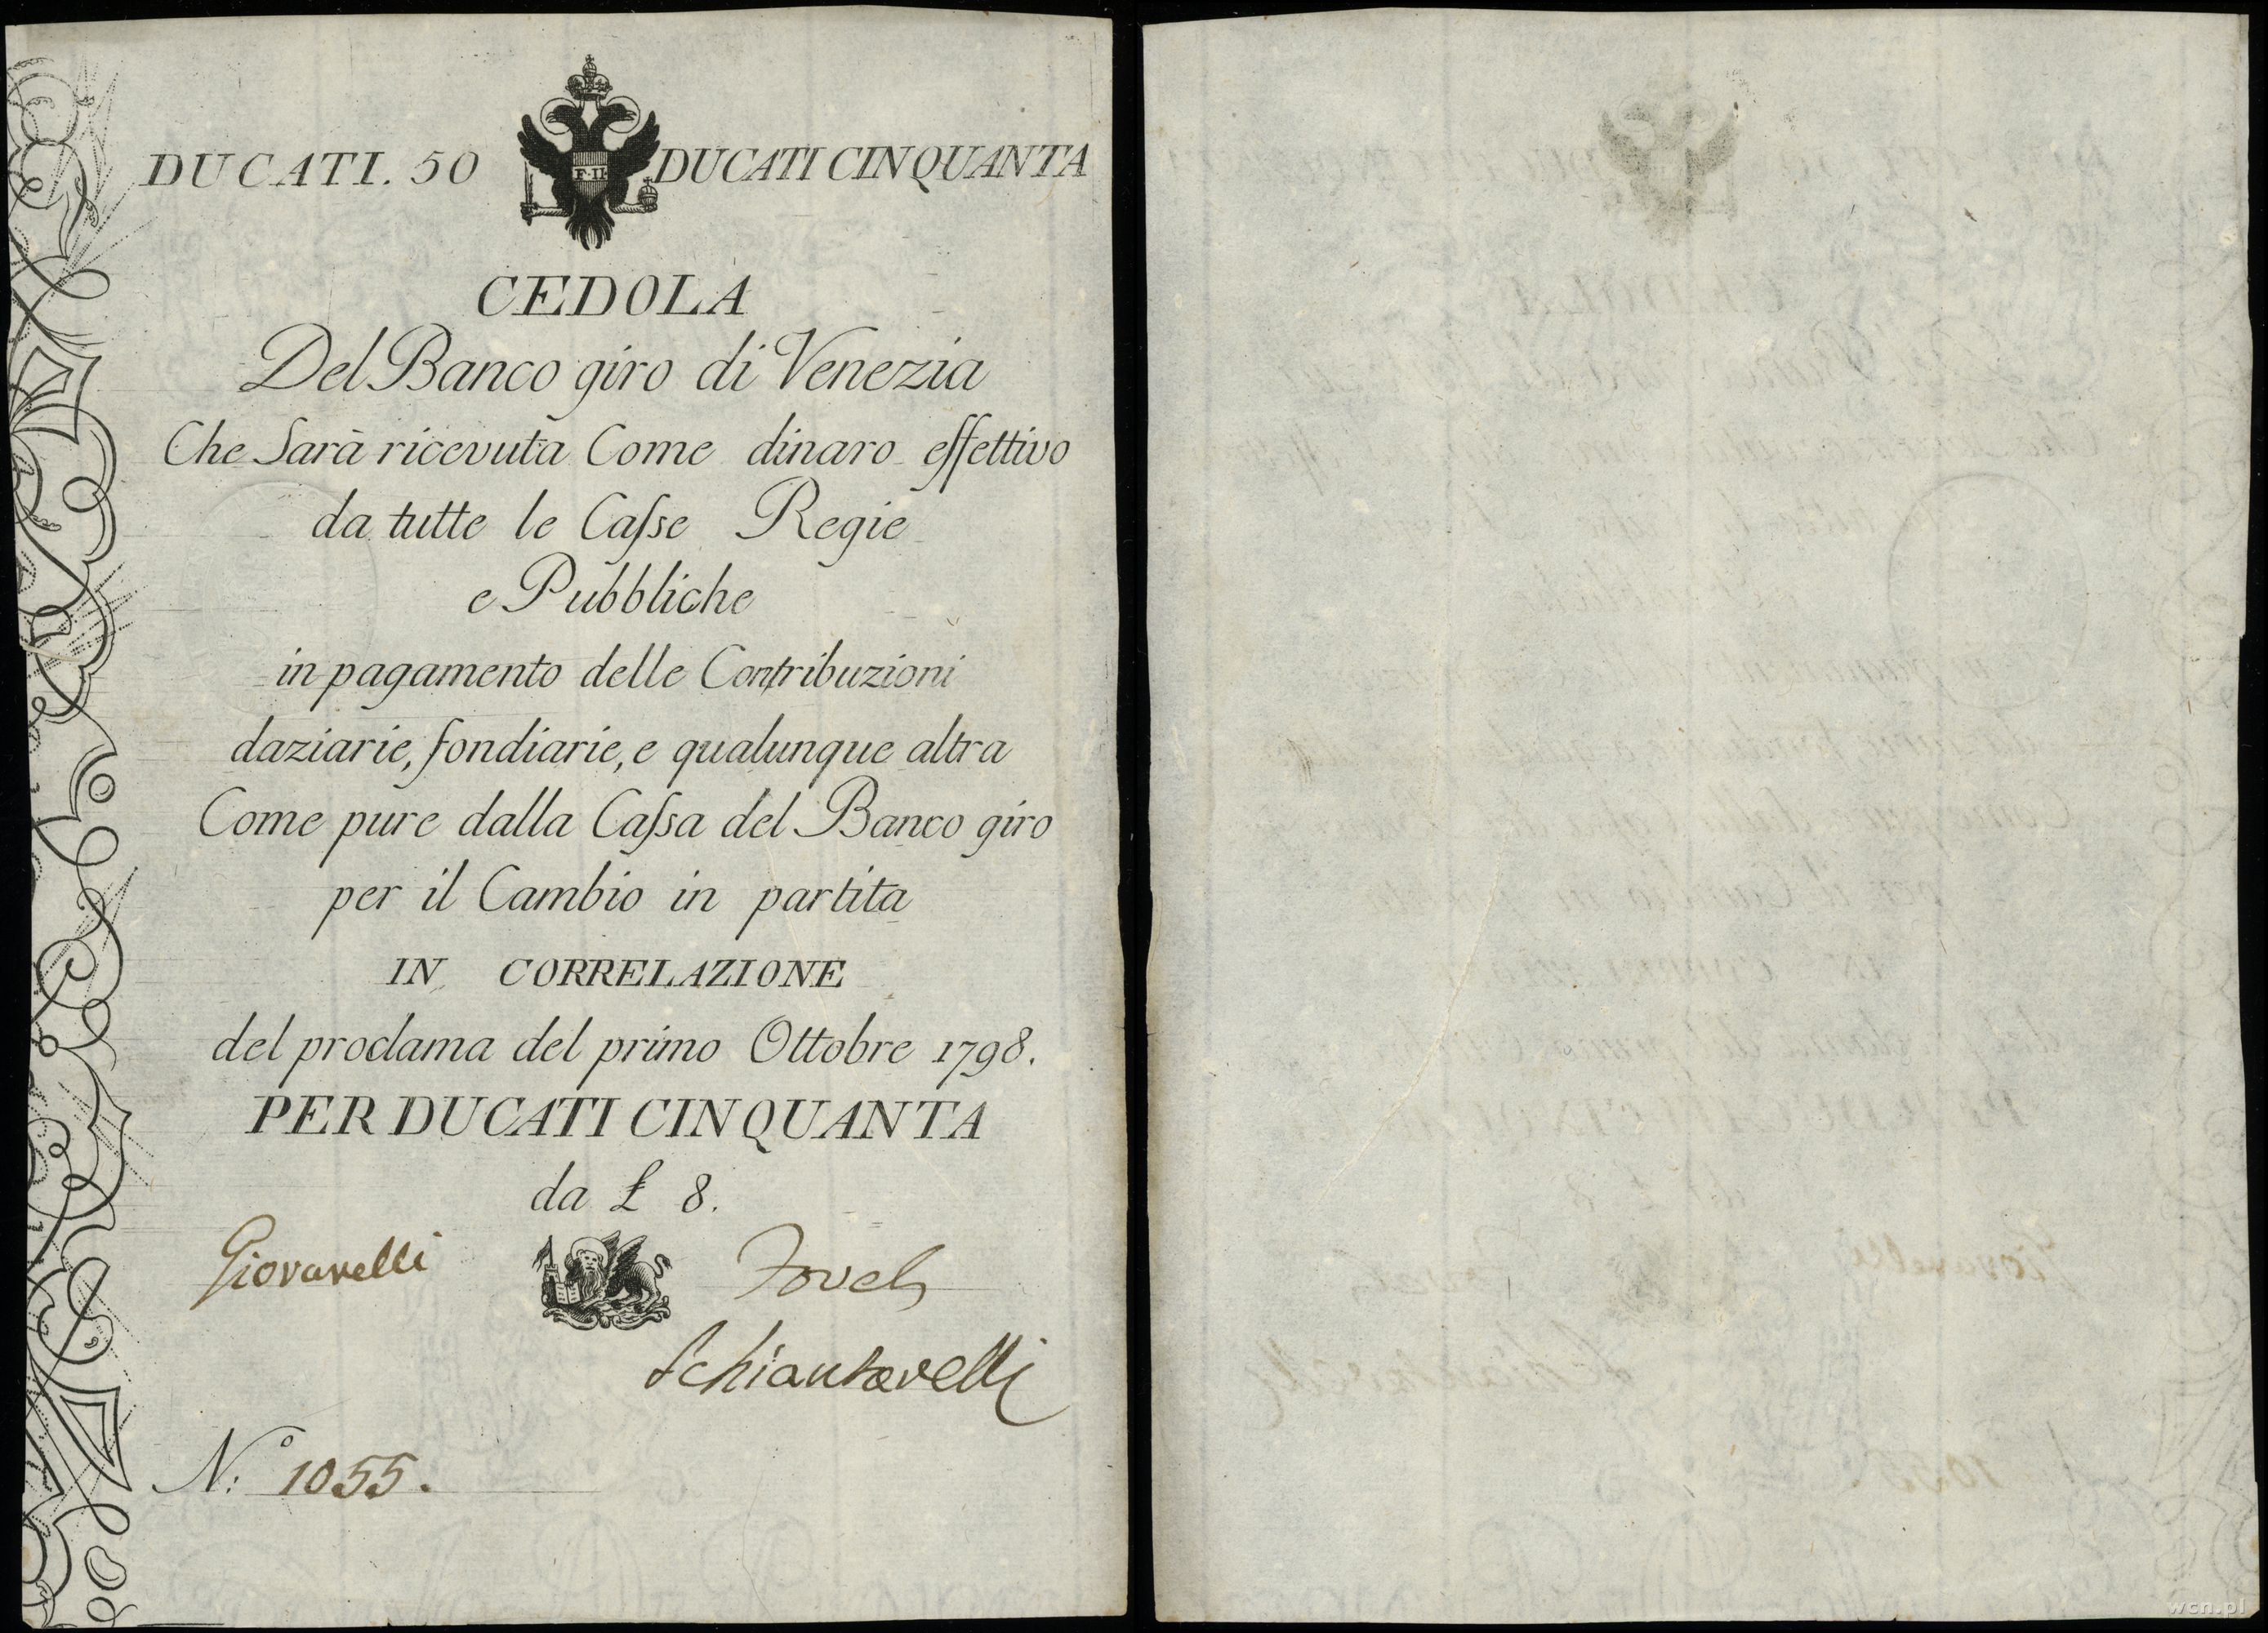 DUCATI. 50 DUCATI CINQUANTA
F·II·
CEDOLA
Del Banco giro di Venezia
Che Sarà ricevuta Come dinaro effettivo
da tutte le Caſse Regie
e Pubbliche
in pagamento delle Contribuzioni
daziarie, fondiarie, e qualunque altra
Come pure dalla Caſsa del Banco giro
per il Cambio in partita
IN CORRELAZIONE
del proclama del primo Ottobre 1798.
PER DUCATI CINQUANTA
da £ 8.
Giovanelli
Schiantarelli
N:º 1055.
wcn.pl